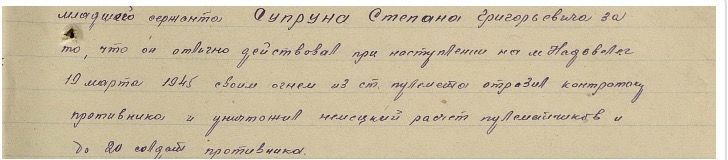 младшего сержанта Супруна Степана Григорьевича за
то, что он отлично действовал при наступлении на м
19 марта 1945 своим огнем из ст. пулемета отразил контратаку
противника и уничтожил немецкий расчет пулеметчиков и
до 20 солдат противника.